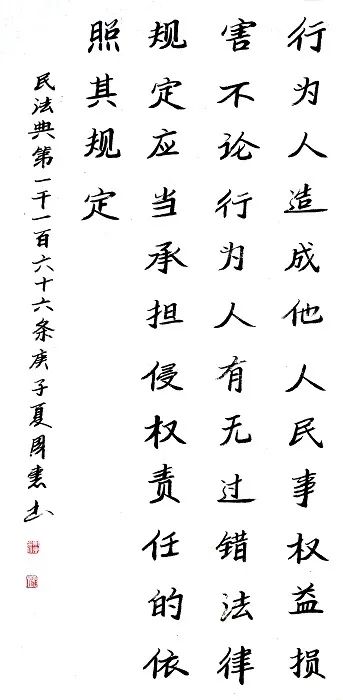 行为人造成他人民事权益损
害不论行为人有无过错法律
规定应当承担侵权责任的依
照其规定
民法典第一千一百六十六条庚子夏周惠书